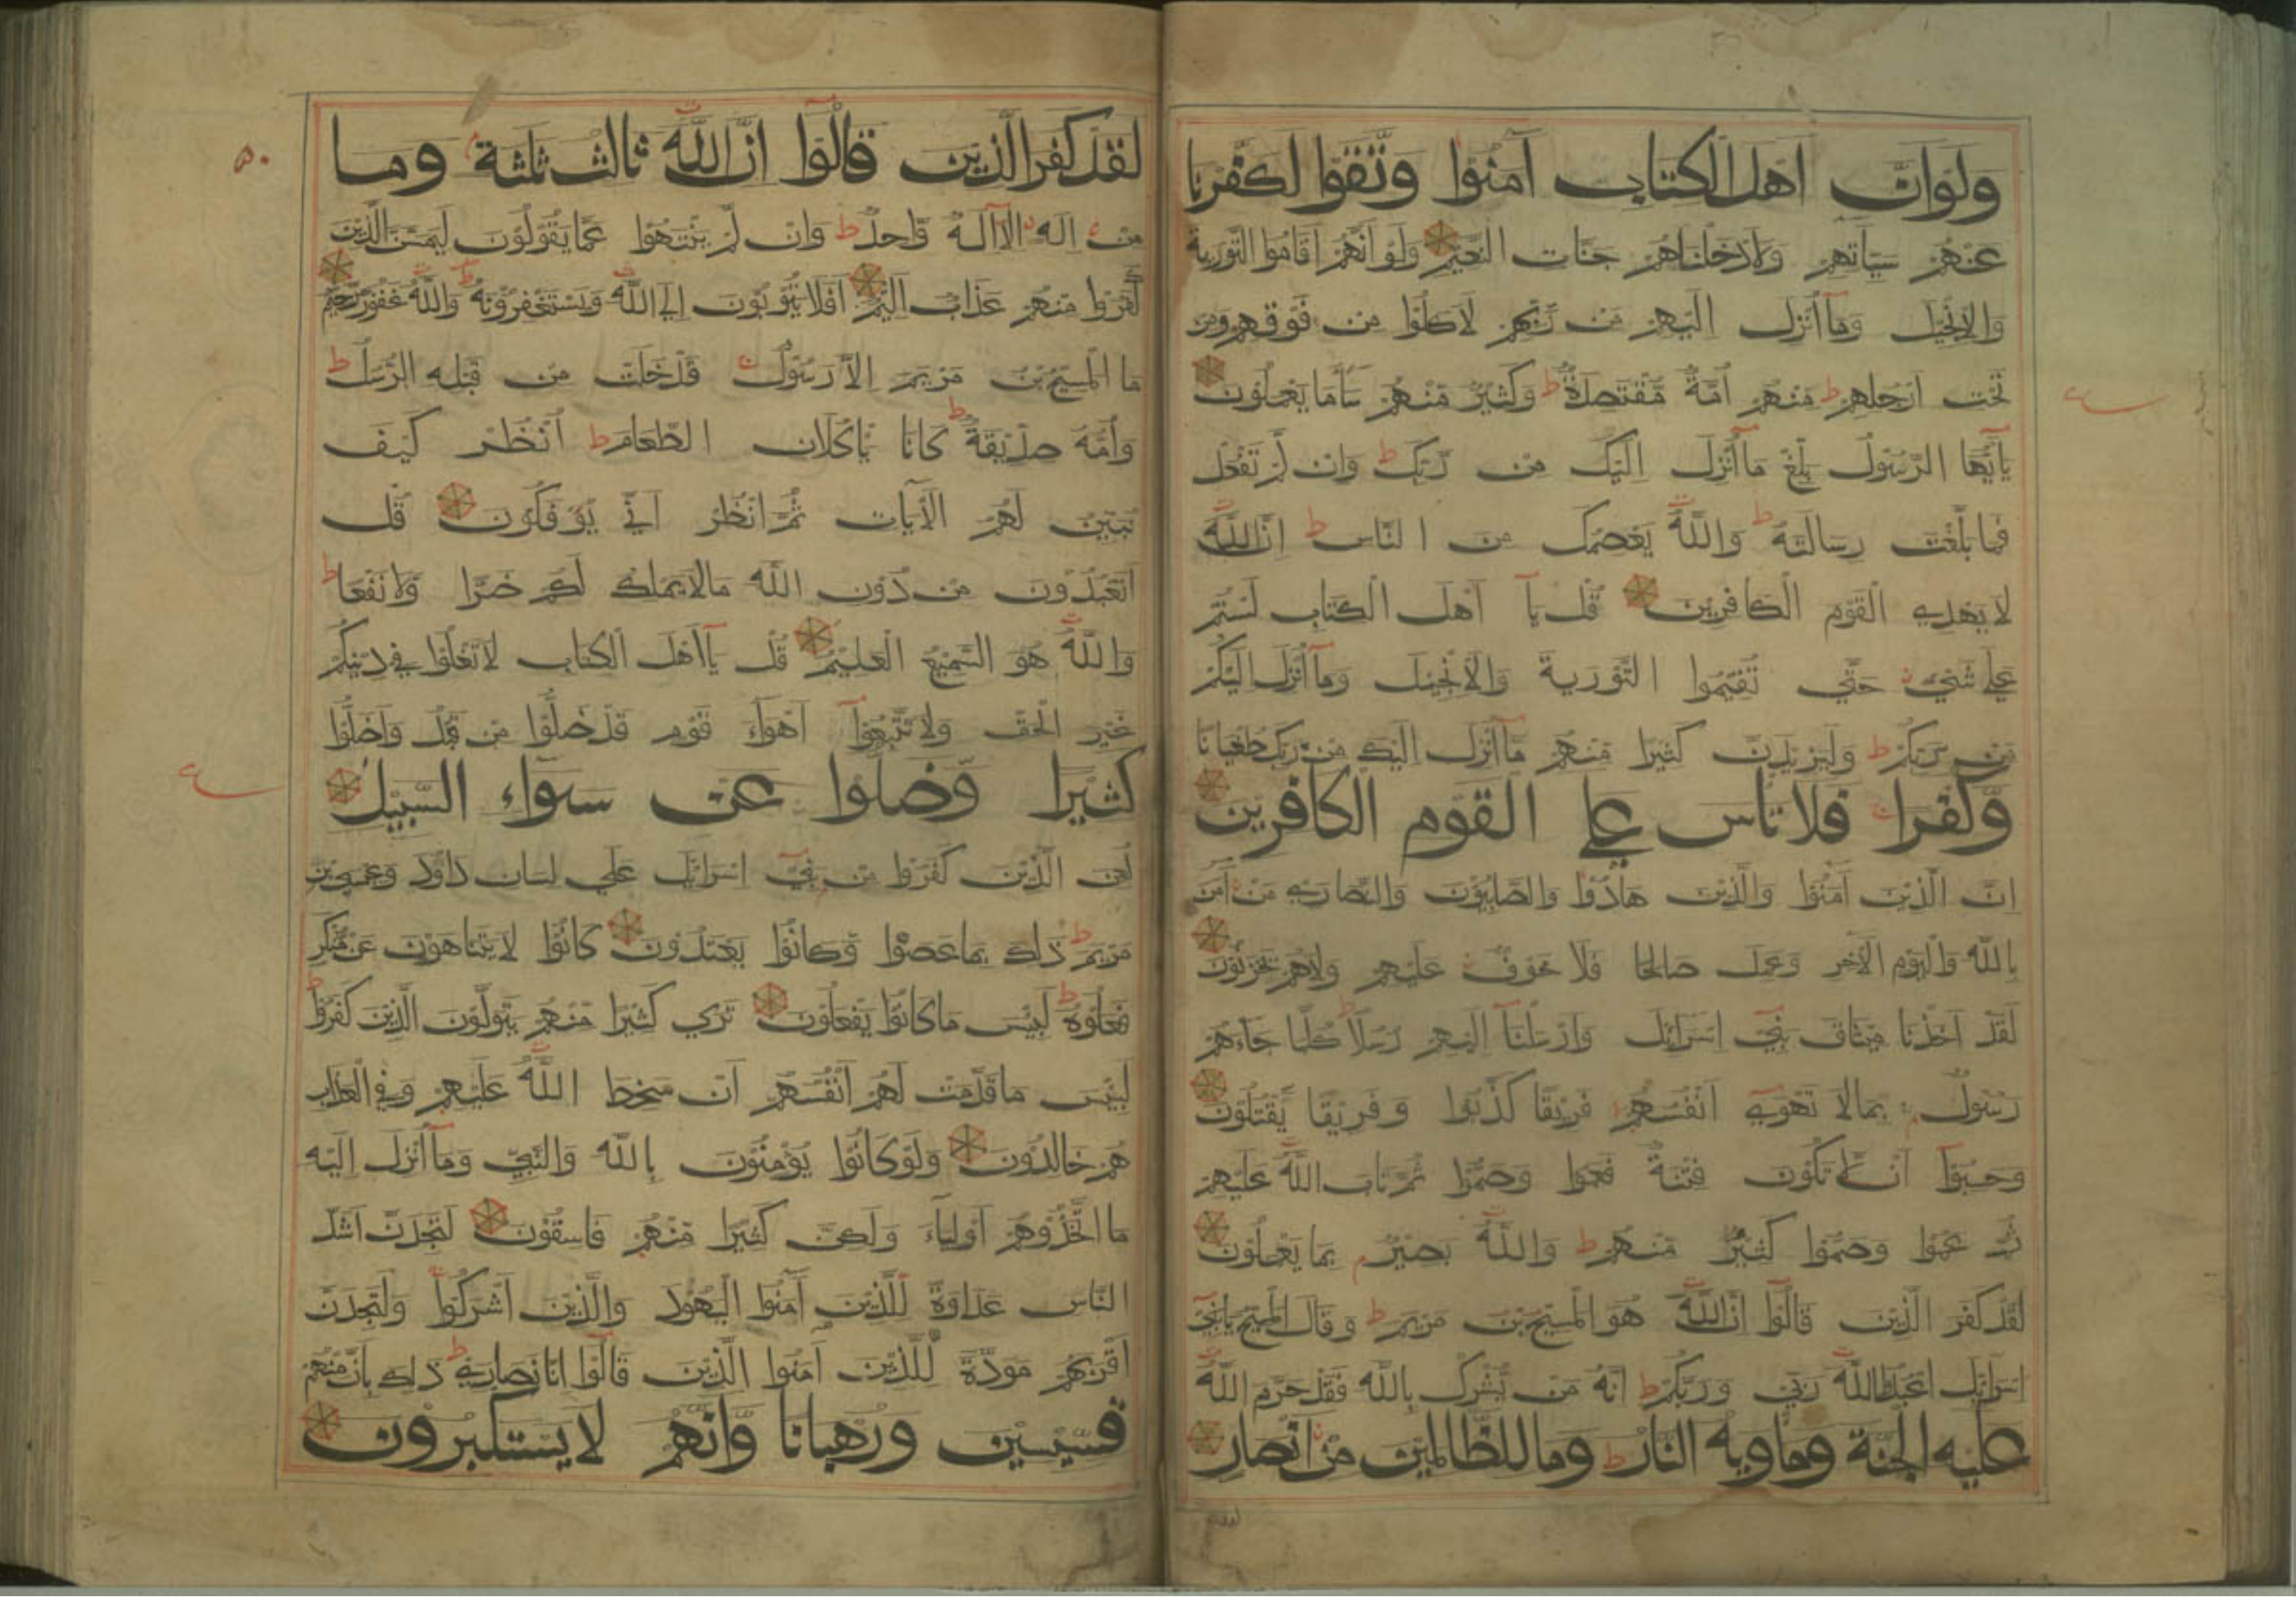 ولو ان اهل الكتاب آمنوا وتقوا لكفرنا
عنهم سيأتهم ولادخلناهم جنات النعيم ولو انهم اقاموا التورية
والانجيل وما انزل اليهم من ربهم لاكلوا من فوقهم ومن
تحت ارجلهم ط منهم امة مقتصدة ط وكثير منهم ساء ما يعملون
يا ايها الرسول بلغ ما انزل اليك من ربك ط وان لم تفعل
فما بلغت رسالته ط والله يعصمك من الناس ط ان الله
لا يهدي القوم الكافرين قل يا اهل الكتاب لستم
علي شيء حتي تقيموا التورية والانجيل وما انزل اليكم
من ربكم ط وليزيدن كثيرا منهم ما انزل اليك من ربك طغيانا
وكفرا ج فلا تأس علي القوم الكافرين
ان الذين آمنوا والذين هادوا والصابؤن والنصاري من آمن
بالله واليوم الآخر وعمل صالحا فلا خوف عليهم ولاهم يحزنون
لقد اخذنا ميثاق بني اسرائل وارسلنا اليهم رسلا ط كلما جاءهم
رسول بما لا تهوي انفسهم فريقا كذبوا وفريقا يقتلون
وحسبوا ان لا تكون فتنة فعموا وصموا ثم تاب الله عليهم
ثم عموا وصموا كثير منهم ط والله بصير بما يعملون
لقد كفر الذين قالوا ان الله هو المسيح بن مريم ط وقال المسيح يا بني
اسرائل اعبدوا الله ربي وربكم ط انه من يشرك بالله فقد حرم الله
عليه الجنة ومأويه النار ط وما للظالمين من انصار
٥٠
لقد كفر الذين قالوا ان الله ثالث ثلثة م وما
من اله الا اله واحد ط وان لم ينتهوا عما يقولون ليمسن الذين
كفروا منهم عذاب اليم افلا يتوبون الي الله ويستغفرونه ط والله غفور رحيم
ما المسيح بن مريم الا رسول ج قد خلت من قبله الرسل ط
وامه صديقة ط كانا يأكلان الطعام ط انظر كيف
نبين لهم الآيات ثم انظر اني يؤفكون قل
اتعبدون من دون الله ما لا يملك لكم ضرا ولا نفعا ط
والله هو السميع العليم قل يا اهل الكتاب لا تغلوا في دينكم
غير الحق ولا تتبعوا اهواء قوم قد ضلوا من قبل واضلوا
كثيرا وضلوا عن سواء السبيل
لعن الذين كفروا من بني اسرائل علي لسان داود وعيسي بن
مريم ط ذلك بما عصوا وكانوا يعتدون كانوا لا يتناهون عن منكر
فعلوه ط لبئس ما كانوا يفعلون تري كثيرا منهم يتولون الذين كفروا ط
لبئس ما قدمت لهم انفسهم ان سخط الله عليهم وفي العذاب
هم خالدون ولو كانوا يؤمنون بالله والنبي وما انزل اليه
ما اتخذوهم اولياء ولكن كثيرا منهم فاسقون لتجدن اشد
الناس عداوة للذين آمنوا اليهود والذين اشركوا ولتجدن
اقربهم مودة للذين آمنوا الذين قالوا انا نصاري ط ذلك بان منهم
قسيسين ورهبانا وانهم لا يستكبرون